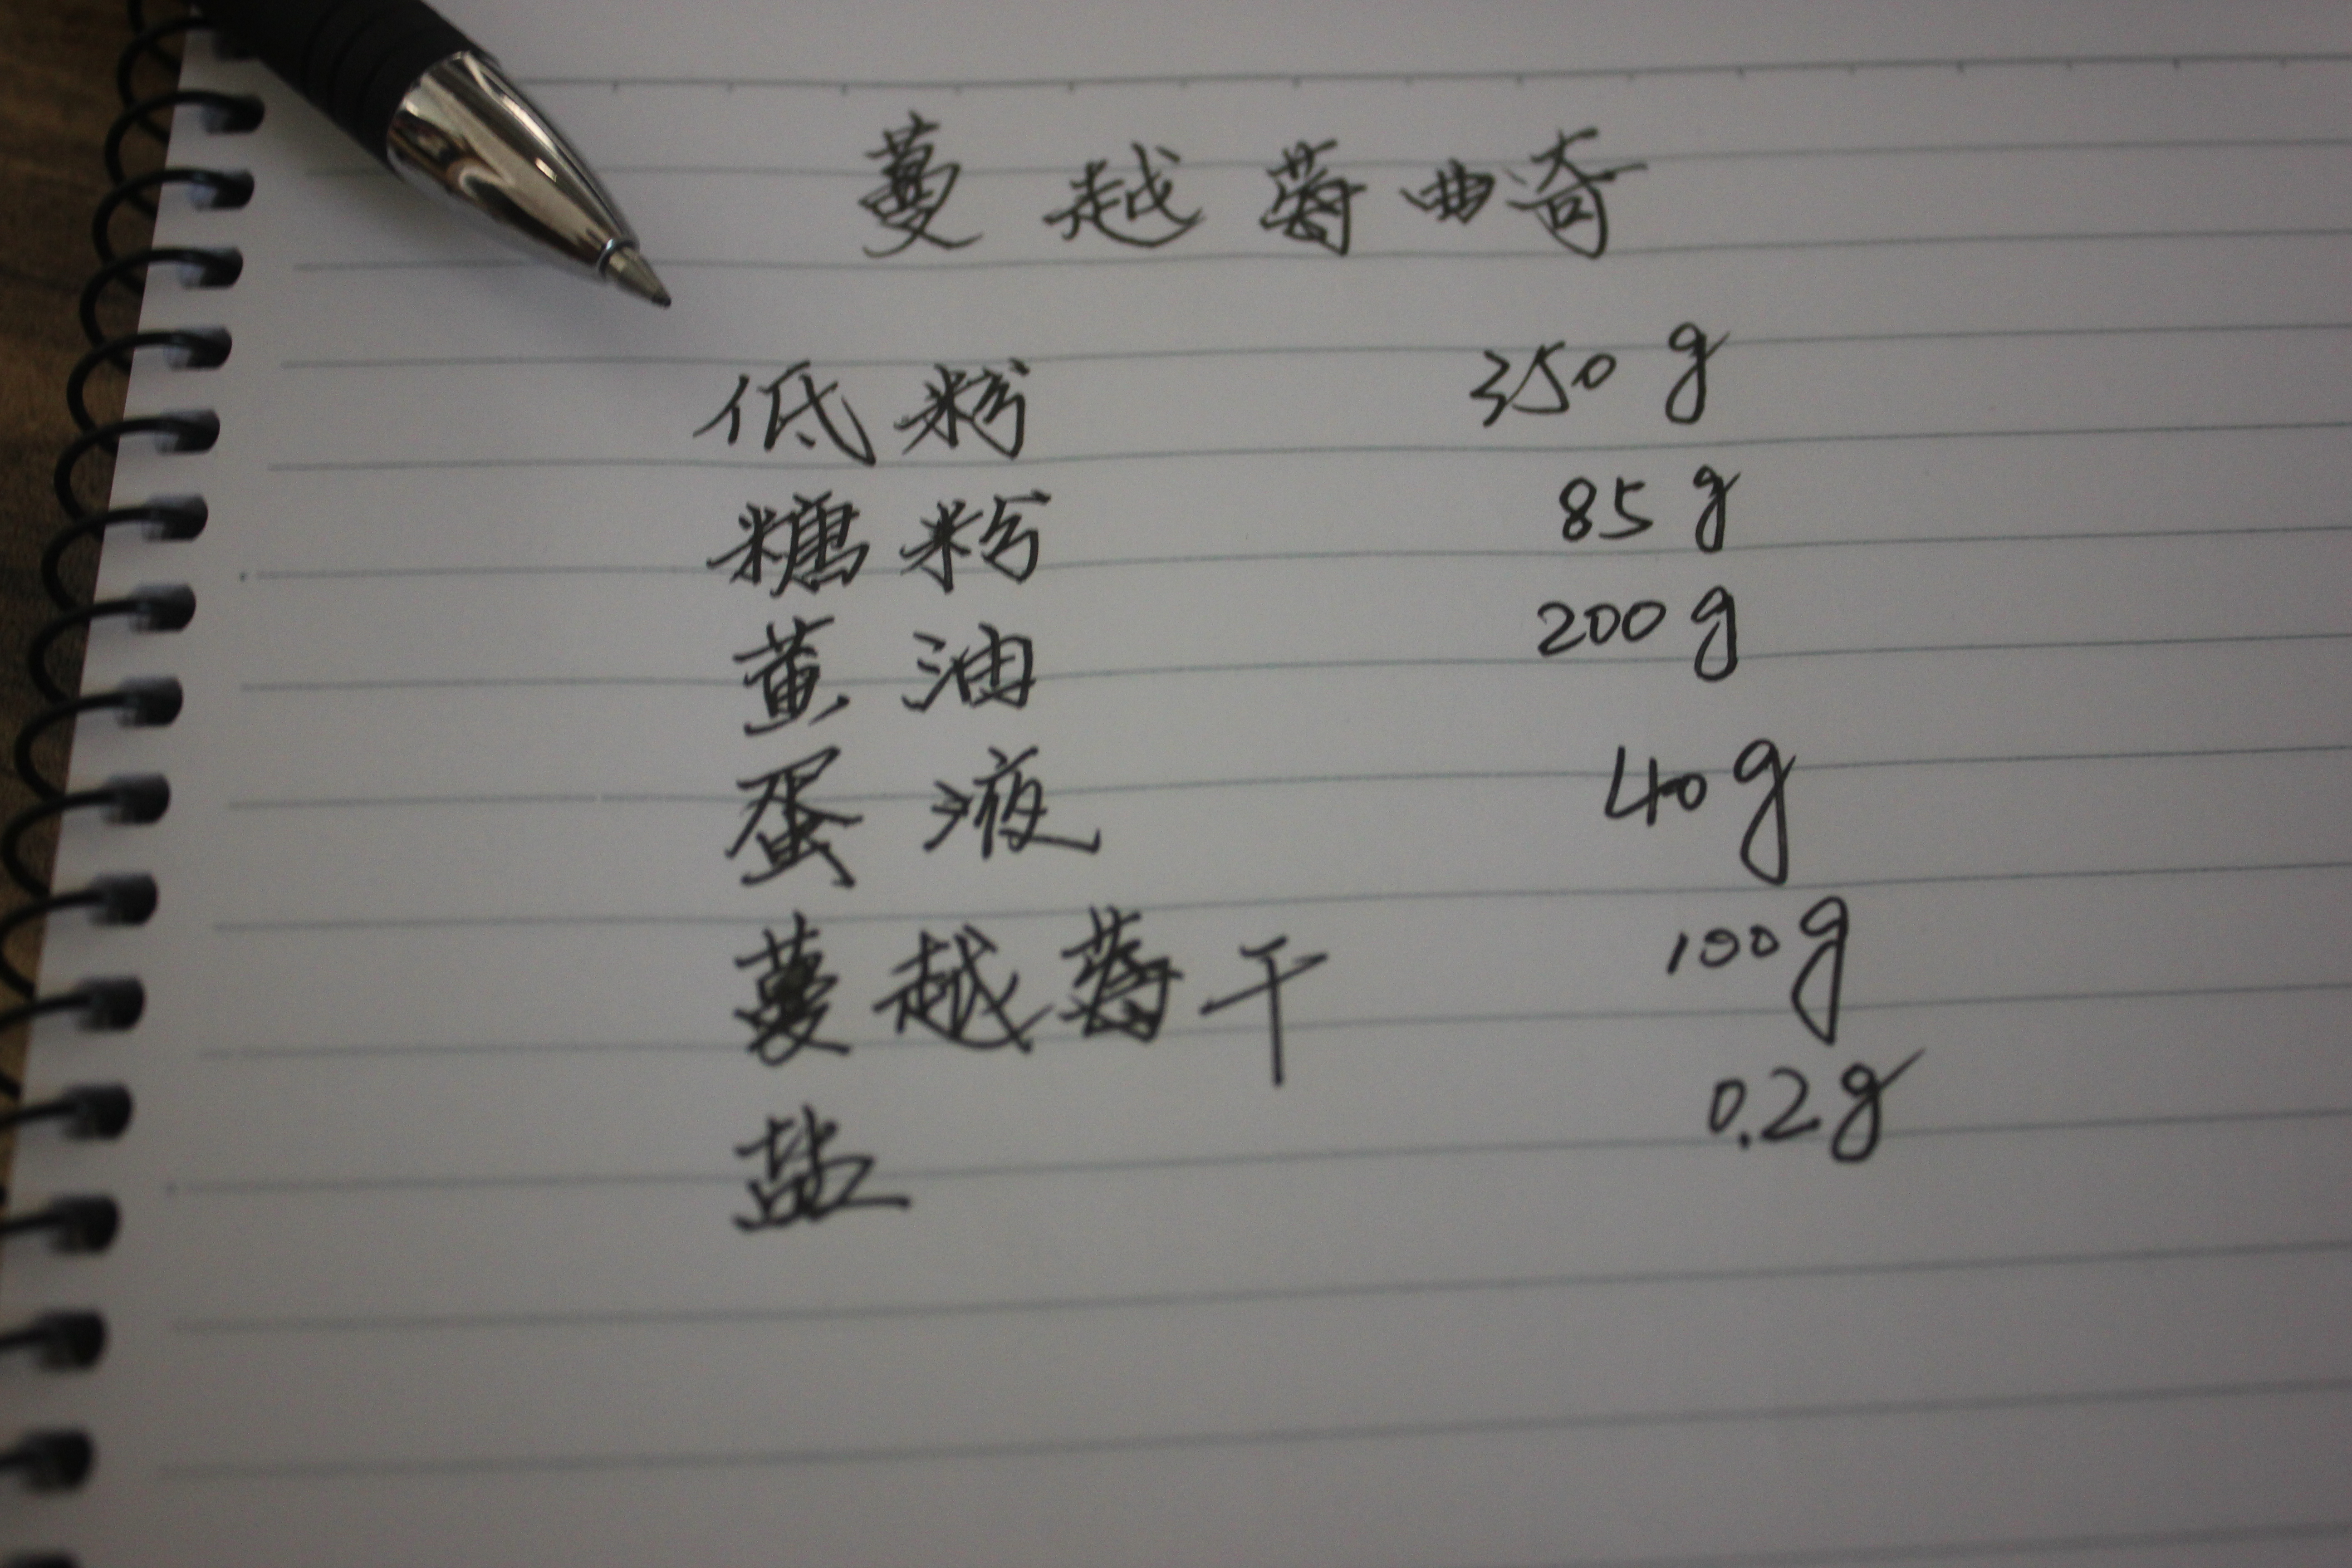 蔓越莓曲奇
低粉 350g
糖粉 85g
黄油 200g
蛋液 40g
蔓越莓干 100g
盐 0.2g